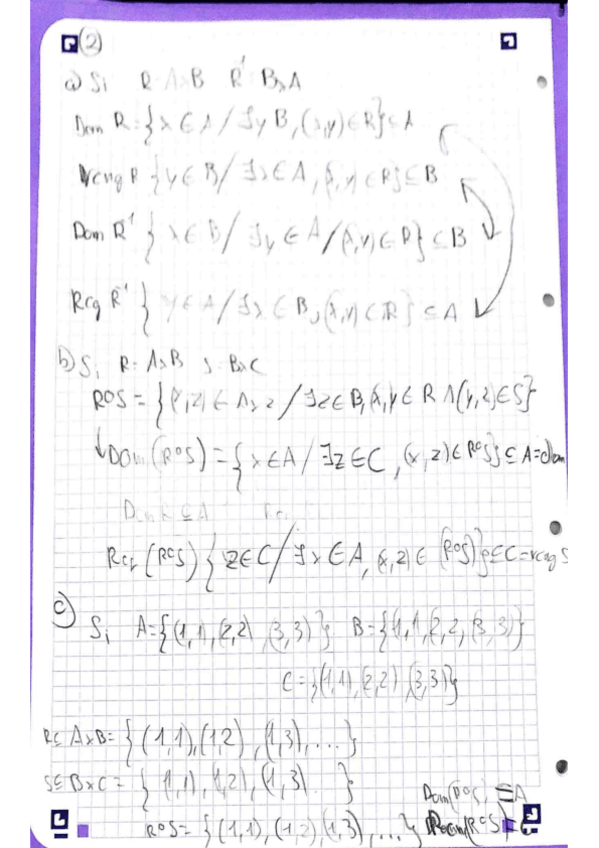 (2)
a) Si R: AxB R⁻¹: BxA
Dom R = {x ∈ A / ∃y B, (x,y) ∈ R} ⊆ A
Rang R {y ∈ B / ∃x ∈ A, (x,y) ∈ R} ⊆ B
Dom R⁻¹ } x ∈ B / ∃y ∈ A / (x,y) ∈ R} ⊆ B
Rcg R⁻¹ } y ∈ A / ∃x ∈ B, (x,y) ∈ R} ⊆ A
b) Si R: AxB S: BxC
R∘S = {(x,z) ∈ Axz / ∃z ∈ B, (x,y ∈ R ∧ (y,z) ∈ S}
↓Dom (R∘S) = {x ∈ A / ∃z ∈ C, (x,z) ∈ R∘S} ⊆ A = dom
Dom R ⊆ A
Rcg (R∘S) {z ∈ C / ∃x ∈ A, (x,z) ∈ (R∘S)} ⊆ C = rcng S
c)
Si A = {(1,1), (2,2), (3,3)} B = {(1,1, (2,2, (3,3)}
C = {(1,1), (2,2), (3,3)}
R ⊆ AxB = {(1,1), (1,2), (1,3), ...}
S ⊆ BxC = {(1,1), (1,2), (1,3) ... }
Dom(R∘S) ⊆ A
R∘S = {(1,1), (1,2), (1,3), ...}